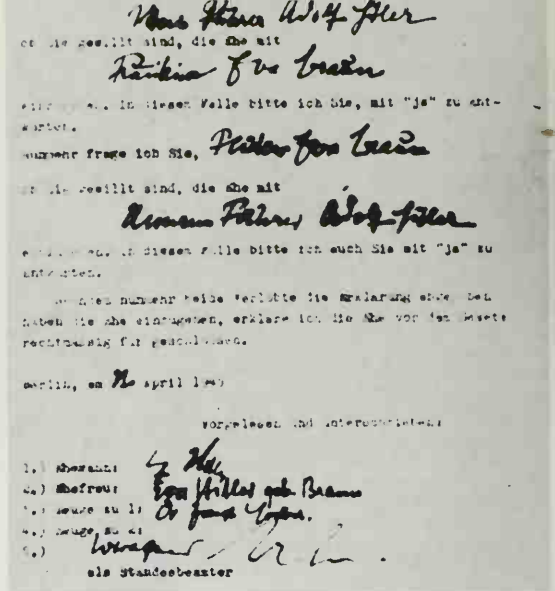 Mein Führer Adolf Hitler
ob Sie gewillt sind, die Ehe mit
Fräulein Eva Braun
einzugehen. In diesem Falle bitte ich Sie, mit "ja" zu ant-
worten.
Nunmehr frage ich Sie, Fräulein Eva Braun
ob Sie gewillt sind, die Ehe mit
Führer Adolf Hitler
einzugehen. In diesem Falle bitte ich auch Sie mit "ja" zu
antworten.
nunmehr beide Verlobte die Erklärung abgegeben
haben die Ehe einzugehen, erkläre ich die Ehe vor dem Gesetz
rechtmässig für geschlossen.
Berlin, am April 1945
Vorgelesen und unterschrieben:
1.) Ehemann:
2.) Ehefrau: Eva Hitler geb. Braun
3.) Zeuge zu 1:
4.) Zeuge zu 2:
5.)
als Standesbeamter